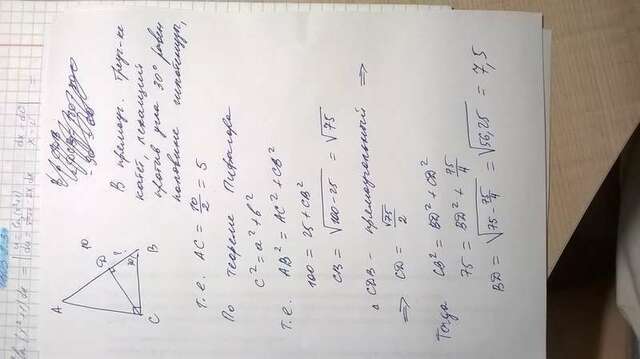 A
10
D
?
30
C
B
В прямоуг. треуг-ке
катет, лежащий
против угла 30° равен
половине гипотенузы,
т.е. AC = 10/2 = 5
По теореме Пифагора
c² = a² + b²
т.е. AB² = AC² + CB²
100 = 25 + CB²
CB = √100-25 = √75
△ CDB - прямоугольный ⇒
⇒ CD = √75/2
Тогда CB² = BD² + CD²
75 = BD² + 75/4
BD = √75 - 75/4 = √56,25 = 7,5